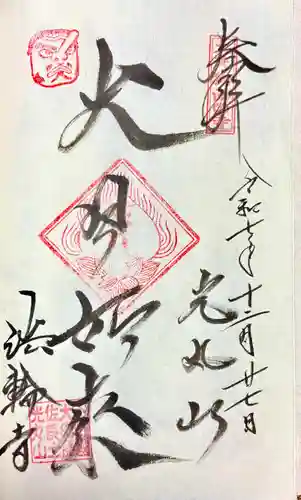 奉拝
令和七年十二月廿七日
光丸山
大日如来
法輪寺
光丸山